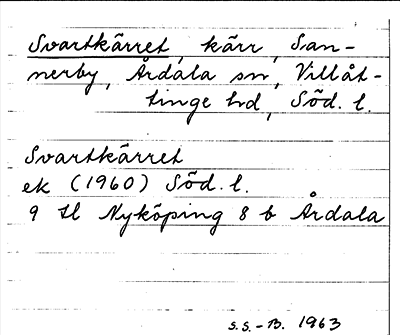 Svartkärret, kärr, San-
nerby, Årdala sn, Villåt-
tinge hd, Söd. l.
Svartkärret
ek (1960) Söd. l.
9 H Nyköping 8 b Årdala
S.S.-B. 1963